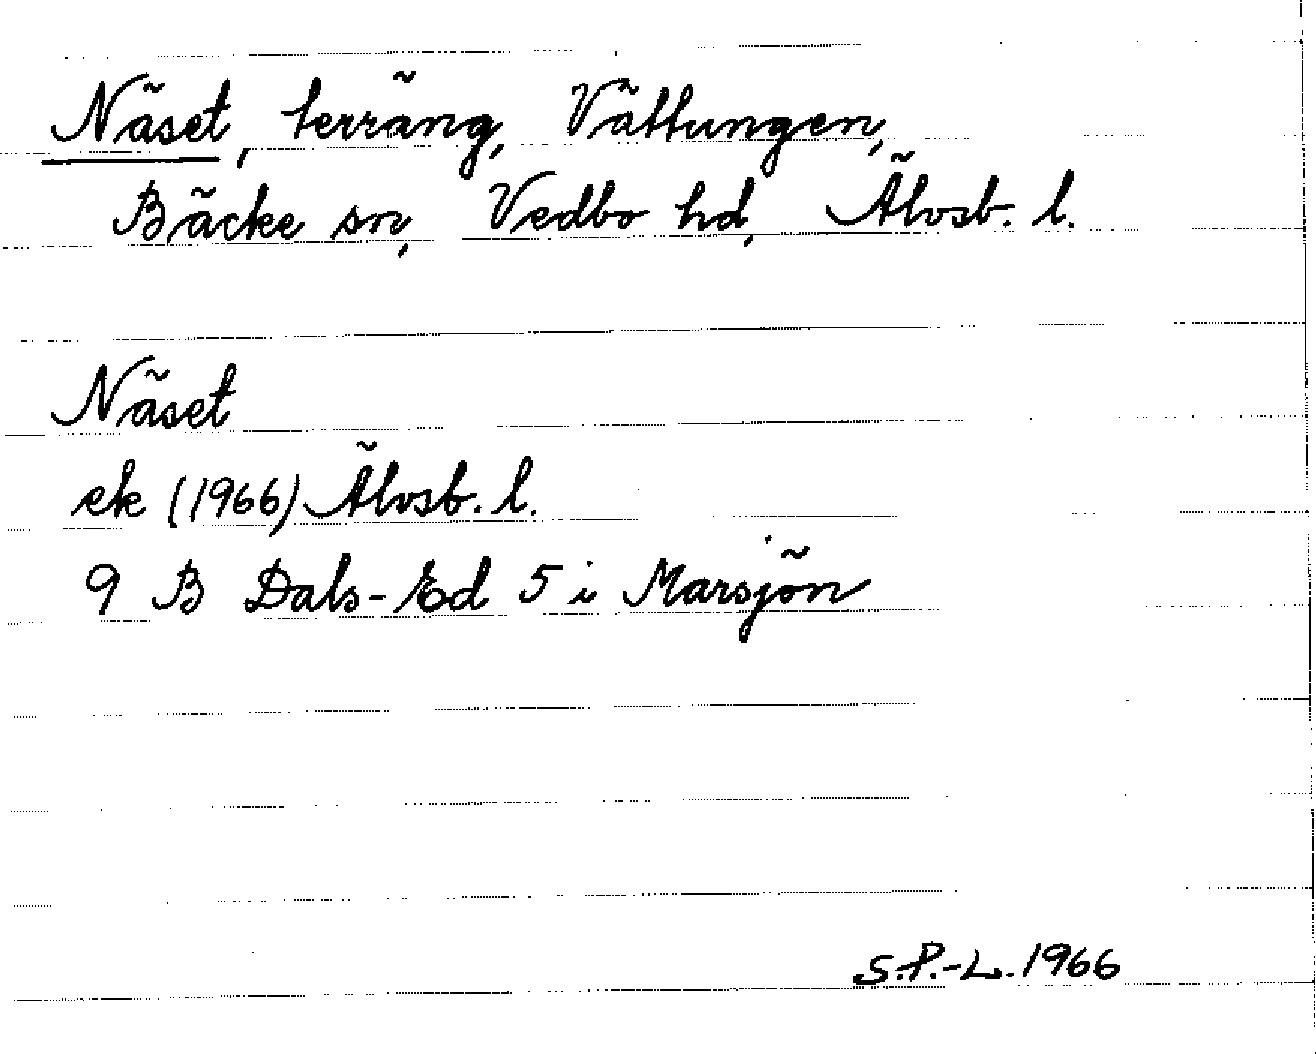 Näset, terräng, Vättungen,
Bäcke sn, Vedbo hd, Älvsb. l.
Näset
ek (1966) Älvsb. l.
9 B Dals-Ed 5 i Marsjön
S.P.-L. 1966